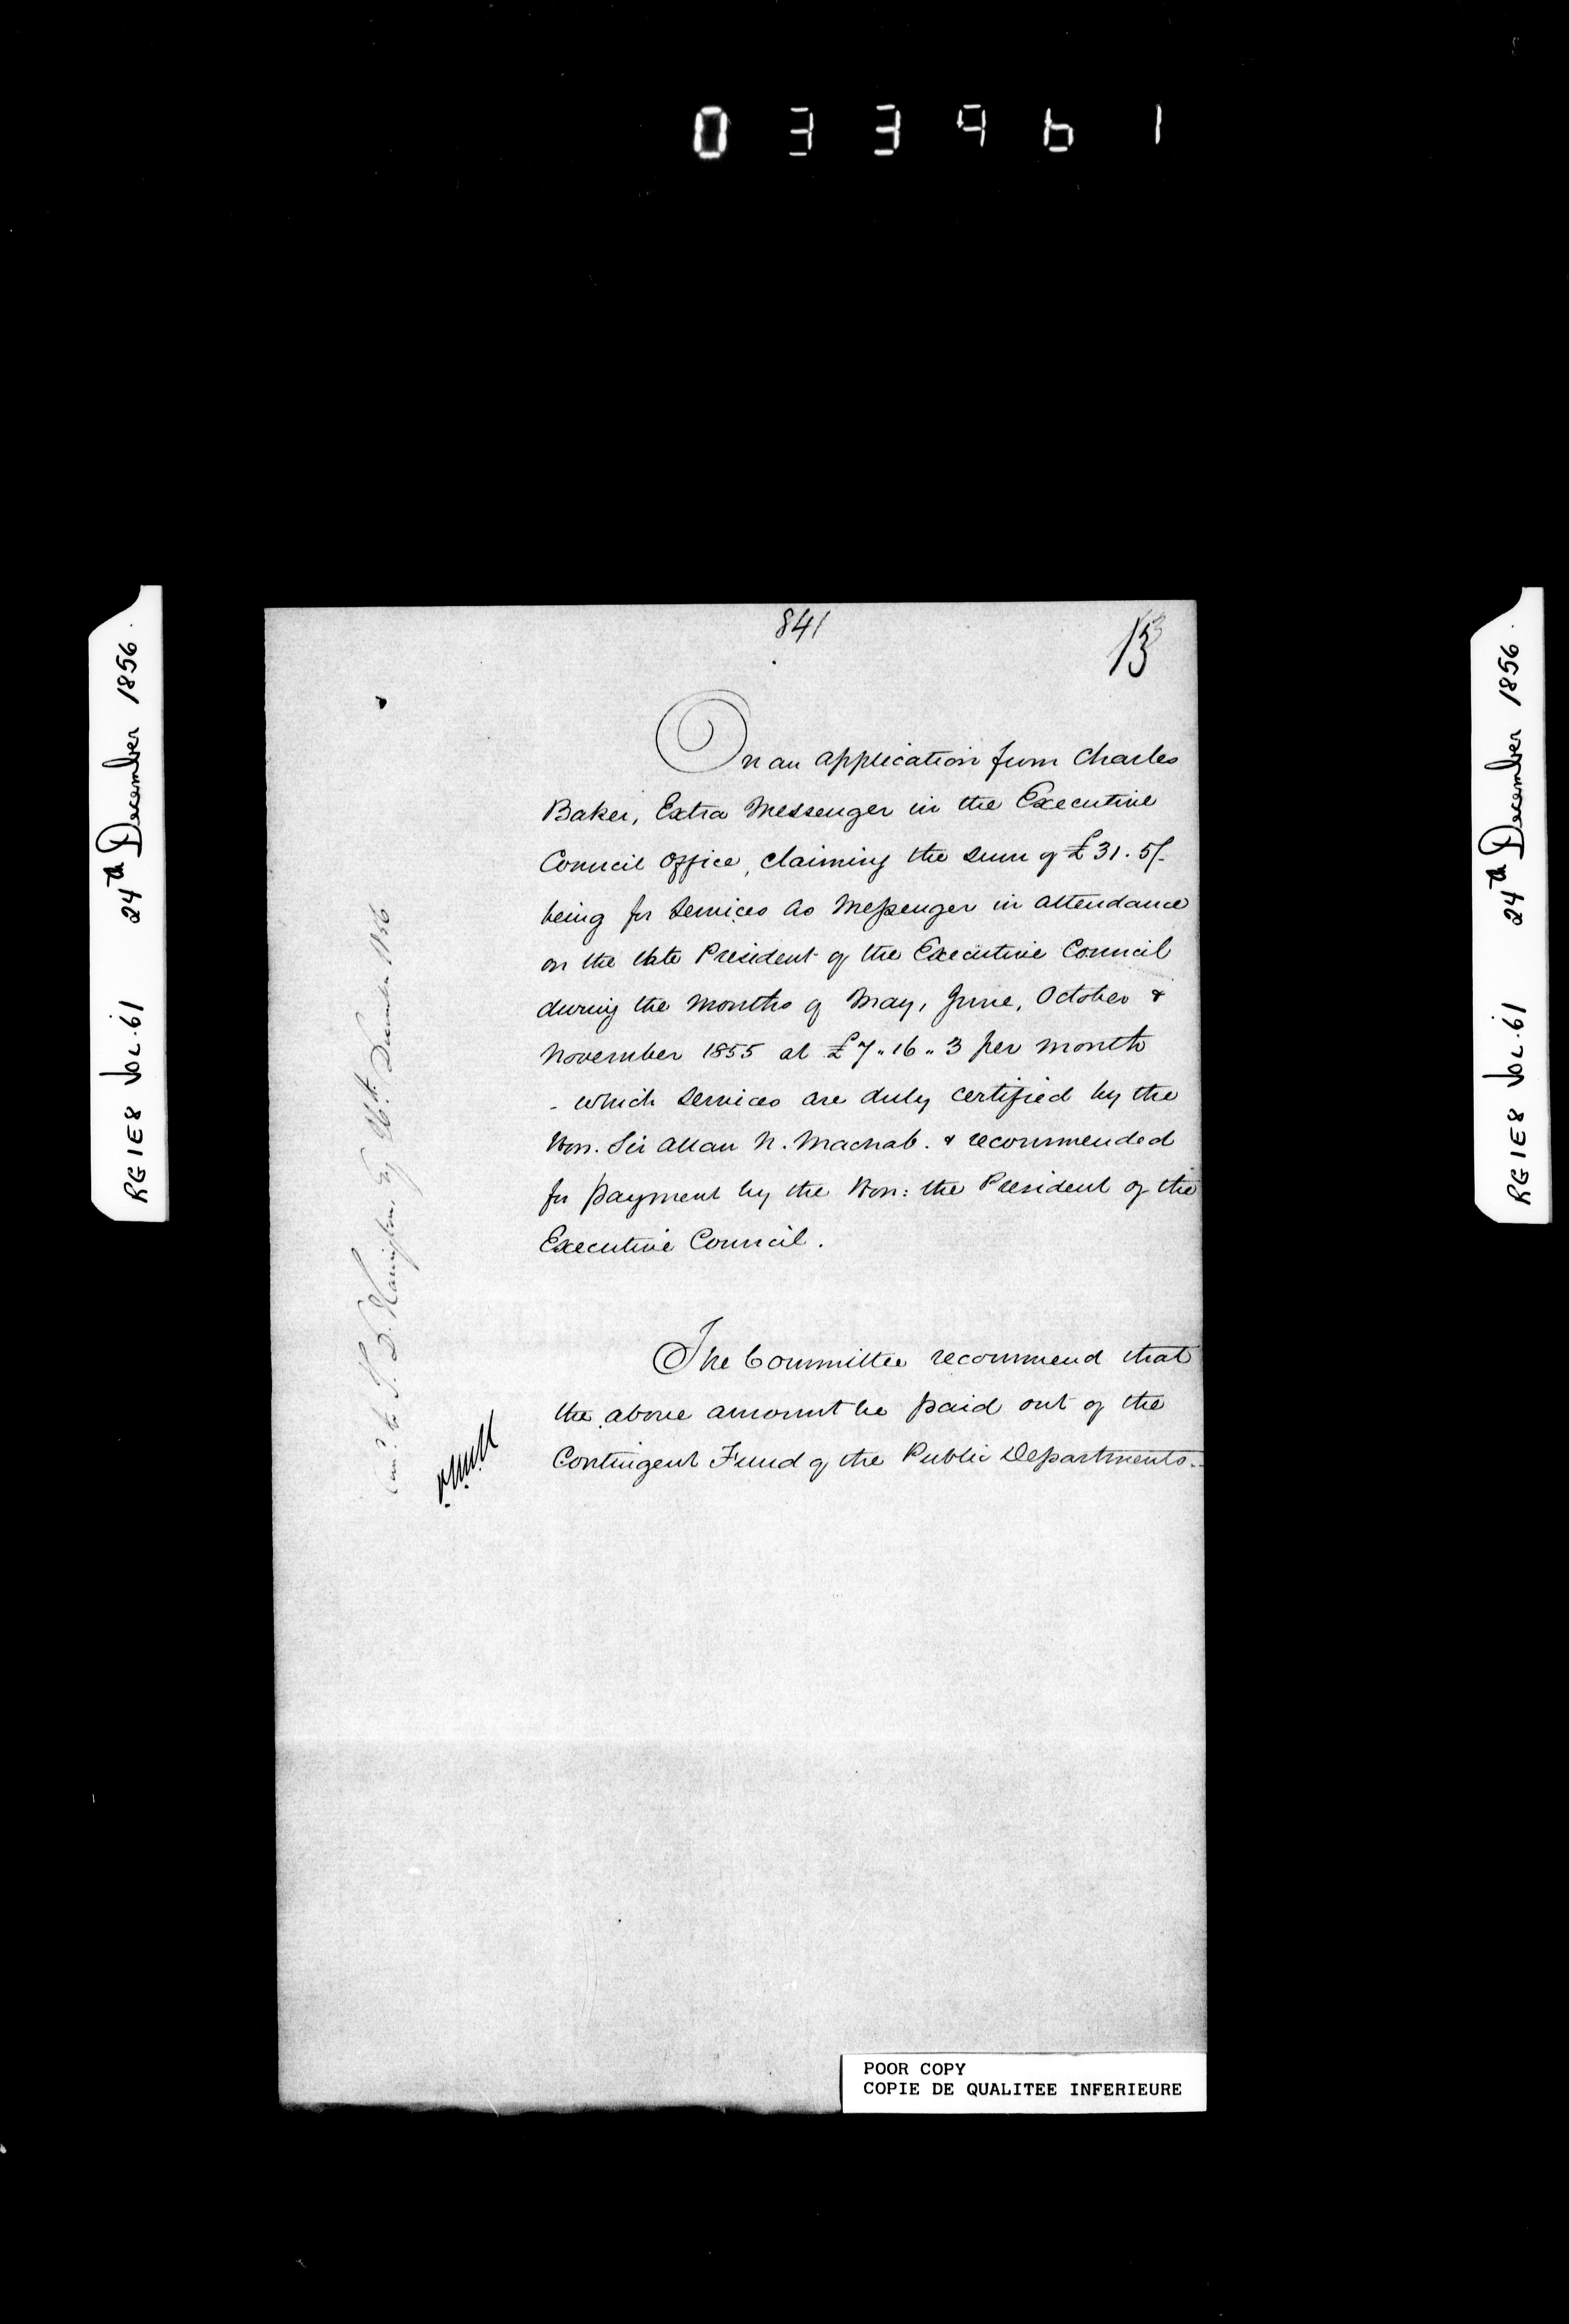 033961
RG1E8 VOL.61 24th December 1856.
841
13
On an application from Charles
Baker, Extra Messenger in the Executive
Council Office, claiming the sum of £31.5/-
being for services as Messenger in attendance
on the late President of the Executive Council
during the months of May, June, October &
November 1855 at £7.,16.,3 per month
- which services are duly certified by the
Hon. Sir Allan N. Macnab. & recommended
for payment by the Hon: the President of the
Executive Council.
The Committee recommend that
the above amount be paid out of the
Contingent Fund of the Public Departments.-
to T. D. Harington Esq December 1856
POOR COPY
COPIE DE QUALITEE INFERIEURE
RG1E8 VOL.61 24th December 1856.